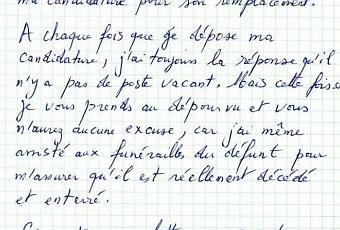 ma candidature pour son remplacement.
A chaque fois que je dépose ma
candidature, j'ai toujours la réponse qu'il
n'y a pas de poste vacant. Mais cette fois-ci
je vous prends au dépourvu et vous
n'aurez aucune excuse, car j'ai même
assisté aux funérailles du défunt pour
m'assurer qu'il est réellement décédé
et enterré.